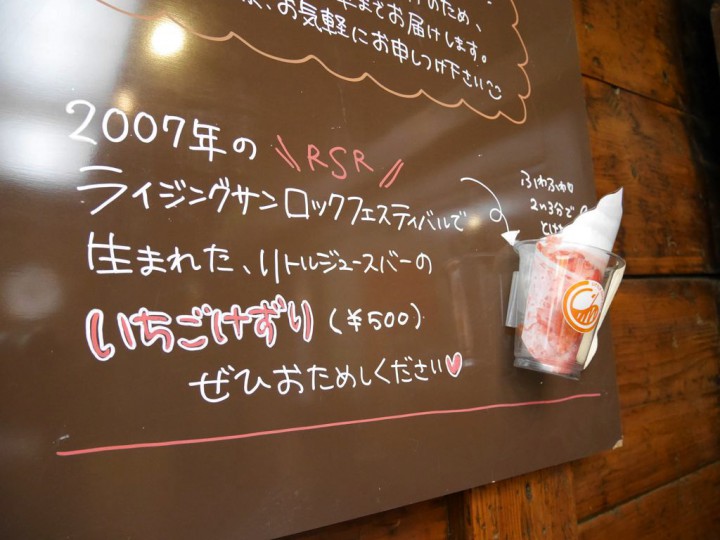 のため、
までお届けします。
、お気軽にお申しつけ下さい
2007年の RSR
ライジングサンロックフェスティバルで
生まれた、リトルジュースバーの
いちごけずり(¥500)
ぜひおためしください♥
ふわふわ
2〜3分で